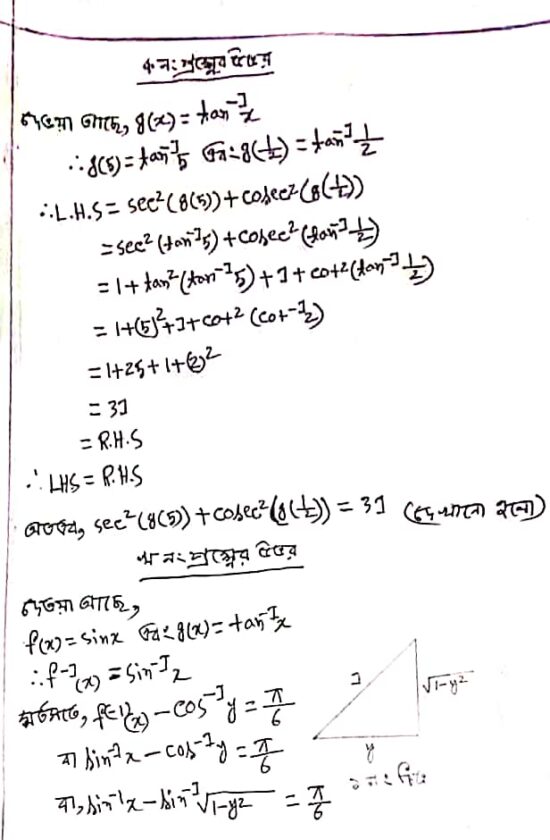 ক নং প্রশ্নের উত্তর
দেওয়া আছে, g(x) = tan⁻¹x
∴ g(5) = tan⁻¹5 এবং g(1/2) = tan⁻¹ 1/2
∴ L.H.S = sec²(g(5)) + cosec²(g(1/2))
= sec²(tan⁻¹5) + cosec²(tan⁻¹ 1/2)
= 1 + tan²(tan⁻¹5) + 1 + cot²(tan⁻¹ 1/2)
= 1 + (5)² + 1 + cot²(cot⁻¹2)
= 1 + 25 + 1 + (2)²
= 31
= R.H.S
∴ LHS = R.H.S
অতএব, sec²(g(5)) + cosec²(g(1/2)) = 31 (দেখানো হলো)
খ নং প্রশ্নের উত্তর
দেওয়া আছে,
f(x) = sinx এবং g(x) = tan⁻¹x
∴ f⁻¹(x) = sin⁻¹x
শর্তমতে, f⁻¹(x) − cos⁻¹y = π/6
বা sin⁻¹x − cos⁻¹y = π/6
বা, sin⁻¹x − sin⁻¹√1−y² = π/6
1
√1−y²
y
১ নং চিত্র